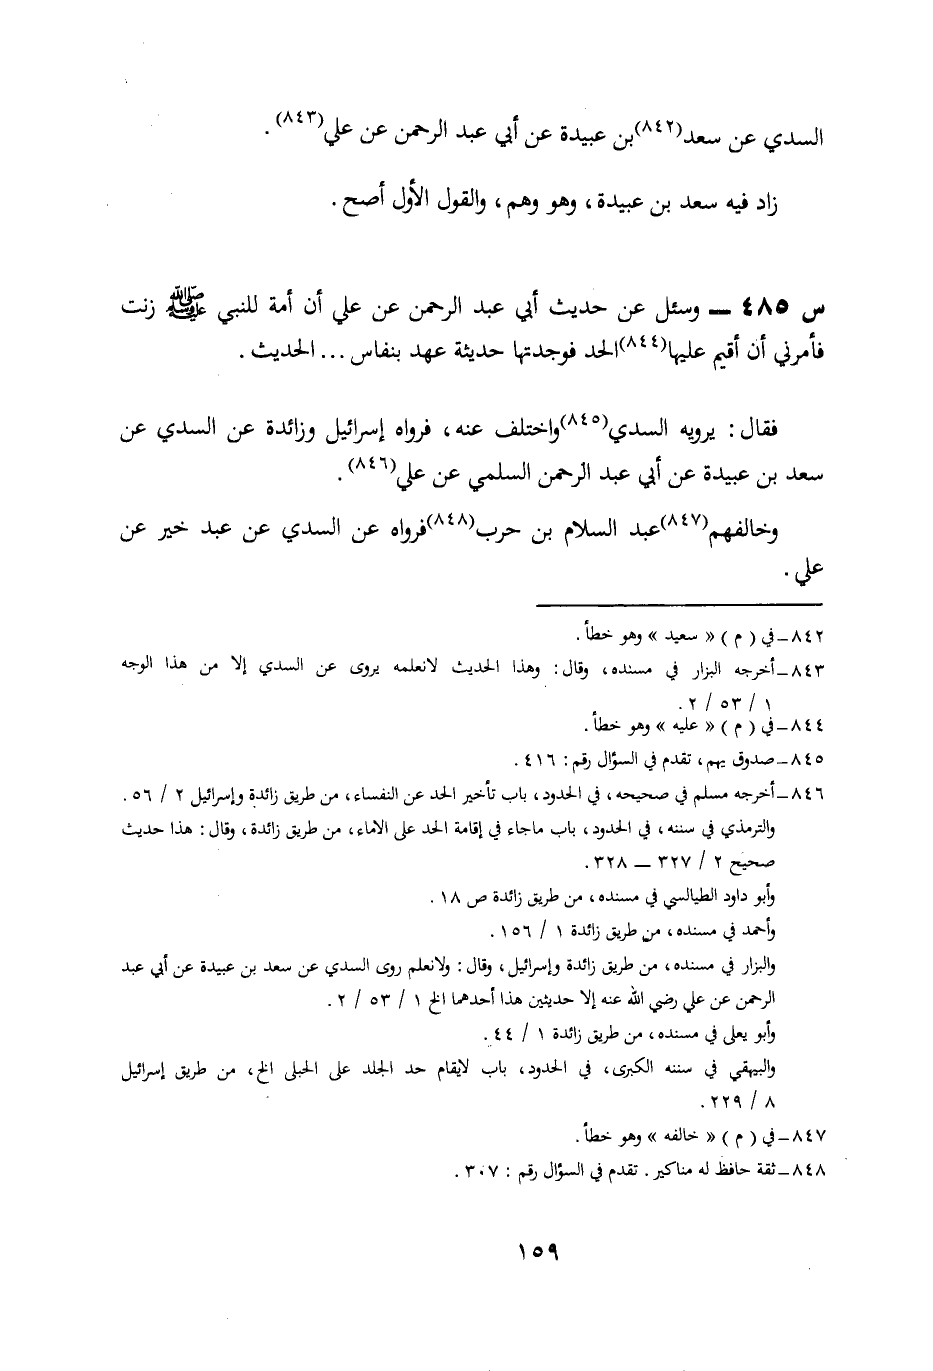 السدي عن سعد(٨٤٢)بن عبيدة عن أبي عبد الرحمن عن علي(٨٤٣) .
زاد فيه سعد بن عبيدة ، وهو وهم ، والقول الأول أصح .
س ٤٨٥ ــ وسئل عن حديث أبي عبد الرحمن عن علي أن أمة للنبي ﷺ زنت
فأمرني أن أقيم عليها(٨٤٤)الحد فوجدتها حديثة عهد بنفاس ... الحديث .
فقال : يرويه السدي(٨٤٥)واختلف عنه ، فرواه إسرائيل وزائدة عن السدي عن
سعد بن عبيدة عن أبي عبد الرحمن السلمي عن علي(٨٤٦) .
وخالفهم(٨٤٧)عبد السلام بن حرب(٨٤٨)فرواه عن السدي عن عبد خير عن
علي .
٨٤٢ــ في ( م ) « سعيد » وهو خطأ .
٨٤٣ــ أخرجه البزار في مسنده ، وقال : وهذا الحديث لانعلمه يروى عن السدي إلا من هذا الوجه
١ / ٥٣ / ٢ .
٨٤٤ــ في ( م ) « عليه » وهو خطأ .
٨٤٥ــ صدوق يهم ، تقدم في السؤال رقم : ٤١٦ .
٨٤٦ــ أخرجه مسلم في صحيحه ، في الحدود ، باب تأخير الحد عن النفساء ، من طريق زائدة وإسرائيل ٢ / ٥٦ .
والترمذي في سننه ، في الحدود ، باب ماجاء في إقامة الحد على الاماء ، من طريق زائدة ، وقال : هذا حديث
صحيح ٢ / ٣٢٧ ــ ٣٢٨ .
وأبو داود الطيالسي في مسنده ، من طريق زائدة ص ١٨ .
وأحمد في مسنده ، من طريق زائدة ١ / ١٥٦ .
والبزار في مسنده ، من طريق زائدة وإسرائيل ، وقال : ولانعلم روى السدي عن سعد بن عبيدة عن أبي عبد
الرحمن عن علي رضي الله عنه إلا حديثين هذا أحدهما الخ ١ / ٥٣ / ٢ .
وأبو يعلى في مسنده ، من طريق زائدة ١ / ٤٤ .
والبيهقي في سننه الكبرى ، في الحدود ، باب لايقام حد الجلد على الحبلى الخ ، من طريق إسرائيل
٨ / ٢٢٩ .
٨٤٧ــ في ( م ) « خالفه » وهو خطأ .
٨٤٨ــ ثقة حافظ له مناكير . تقدم في السؤال رقم : ٣٠٧ .
١٥٩